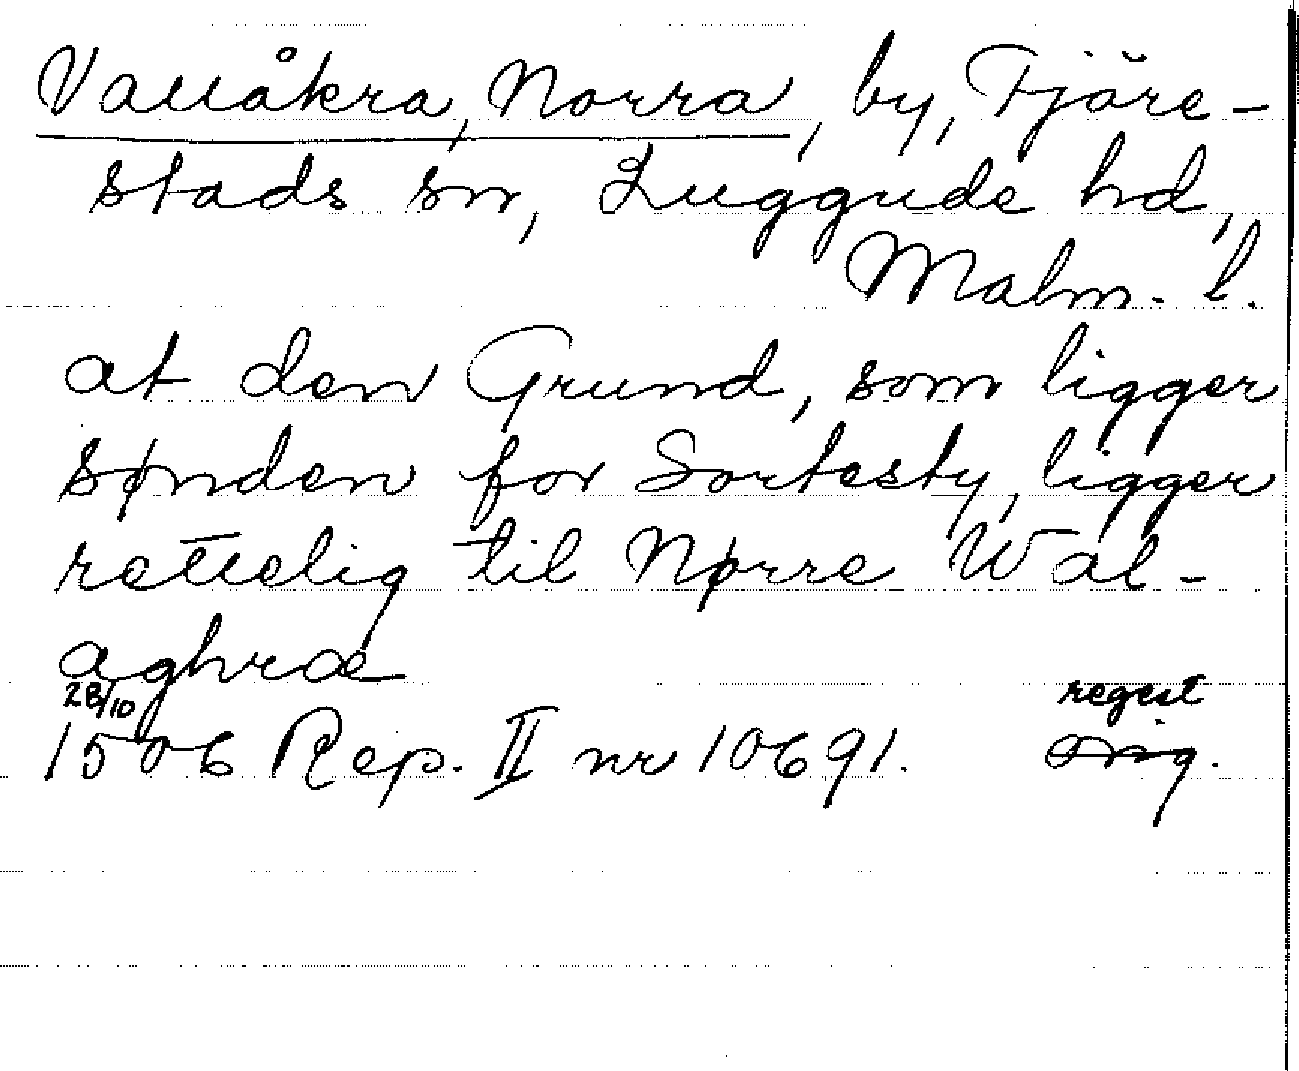 Vallåkra, Norra, by, Fjäre-
stads sn, Luggude hd,
Malm. l.
at den Grund, som ligger
sønden for Sortesty, ligger
rettelig til Nørre Wal-
aghræ
28/10
1506 Rep. II nr 10691.
regest
orig.